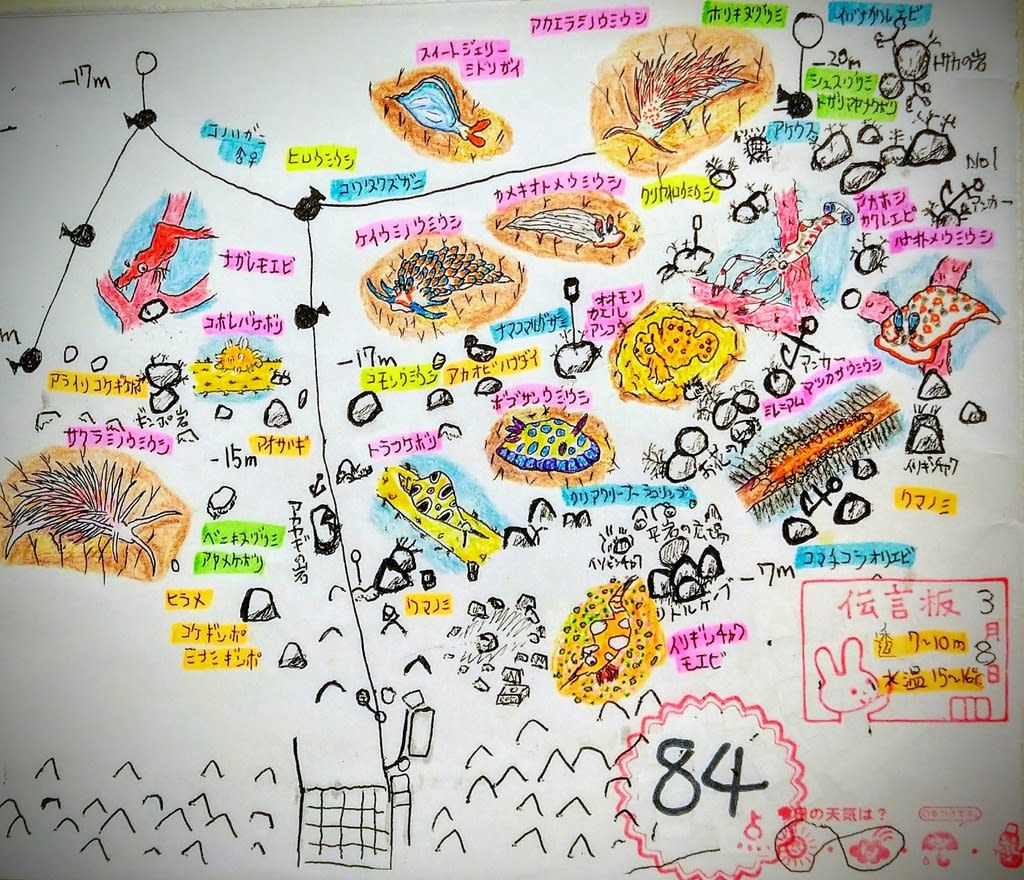 アカエラミノウミウシ
ホリキヌヅツミ
イバナカクレエビ
スイートジェリー
ミドリガイ
-17m
-20m
トサカの岩
シュスヅツミ
トガリマヤナクボリ
アケウス
コノハガニ
♂♀
ヒロウミウシ
コワタクズガニ
カメキオトメウミウシ
クリヤイロウミウシ
No1
アンカー
アカホシ
カクレエビ
ハナオトメウミウシ
ケイウミノウミウシ
ナガレモエビ
コボレバケボリ
ナマコマルガザミ
オオモン
カエル
アンコウ
アンカー
-17m
コモンウミウシ
アカオビハナダイ
アライソコケギンポ
ギンポ岩
ミレニアム
マツカサウミウシ
ボブサンウミウシ
サクラミノウミウシ
アオサハギ
トラフケボリ
-15m
イソギンチャク
クマノミ
カリアクリーブラコリンプ
平岩の広場
アカヤギの岩
ベニキヌヅツミ
アヤメケボリ
コマチコシオリエビ
-7m
リトルケーブ
ヒラメ
コケギンポ
ミナミギンポ
クマノミ
イソギンチャク
モエビ
伝言板
3月8日
透 7~10m
水温 15~16℃
84
今日の天気は?